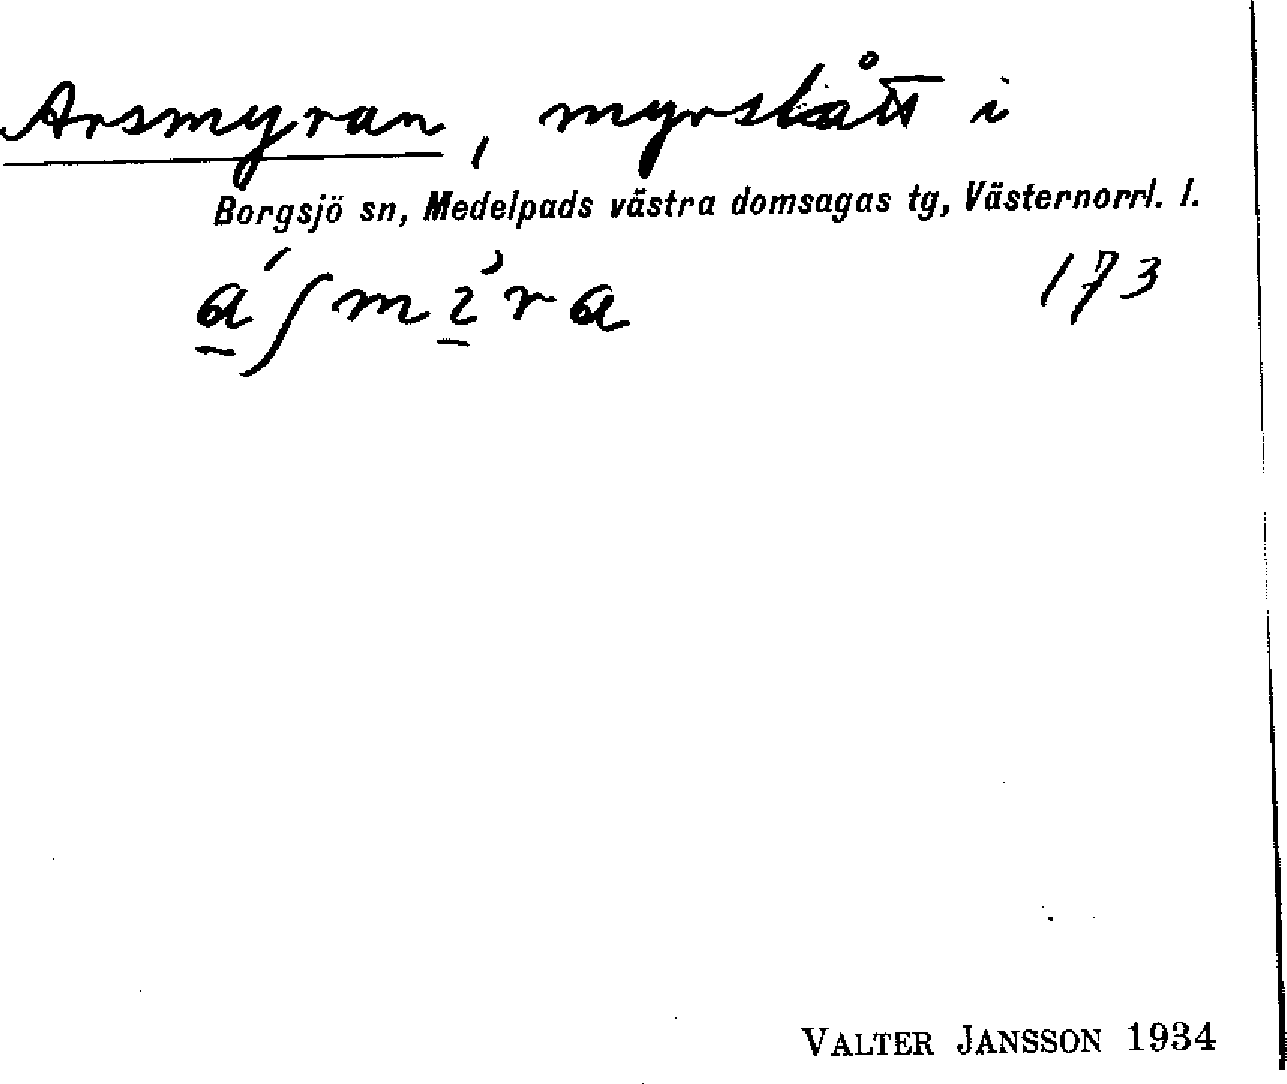 Arsmyran, myrslått i
Borgsjö sn, Medelpads västra domsagas tg, Västernorrl. l.
á̲ʃmì̲ra 173
VALTER JANSSON 1934